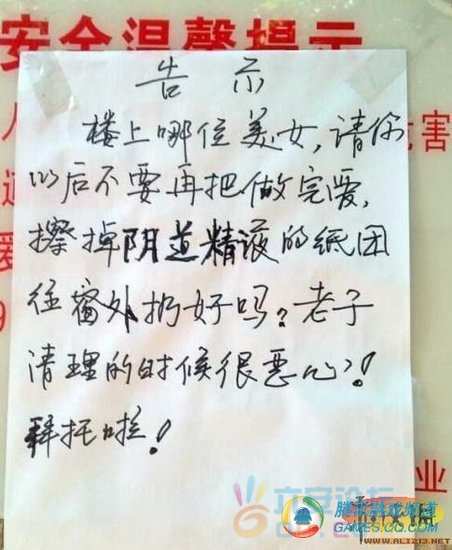 安全温馨提示
告示
楼上哪位美女,请你
以后不要再把做完爱,
擦掉阴道精液的纸团
往窗外扔好吗?老子
清理的时候很恶心!
拜托啦!
危害
业
腾讯游戏频道
GAMES.QQ.COM
WWW.ALI213.NET